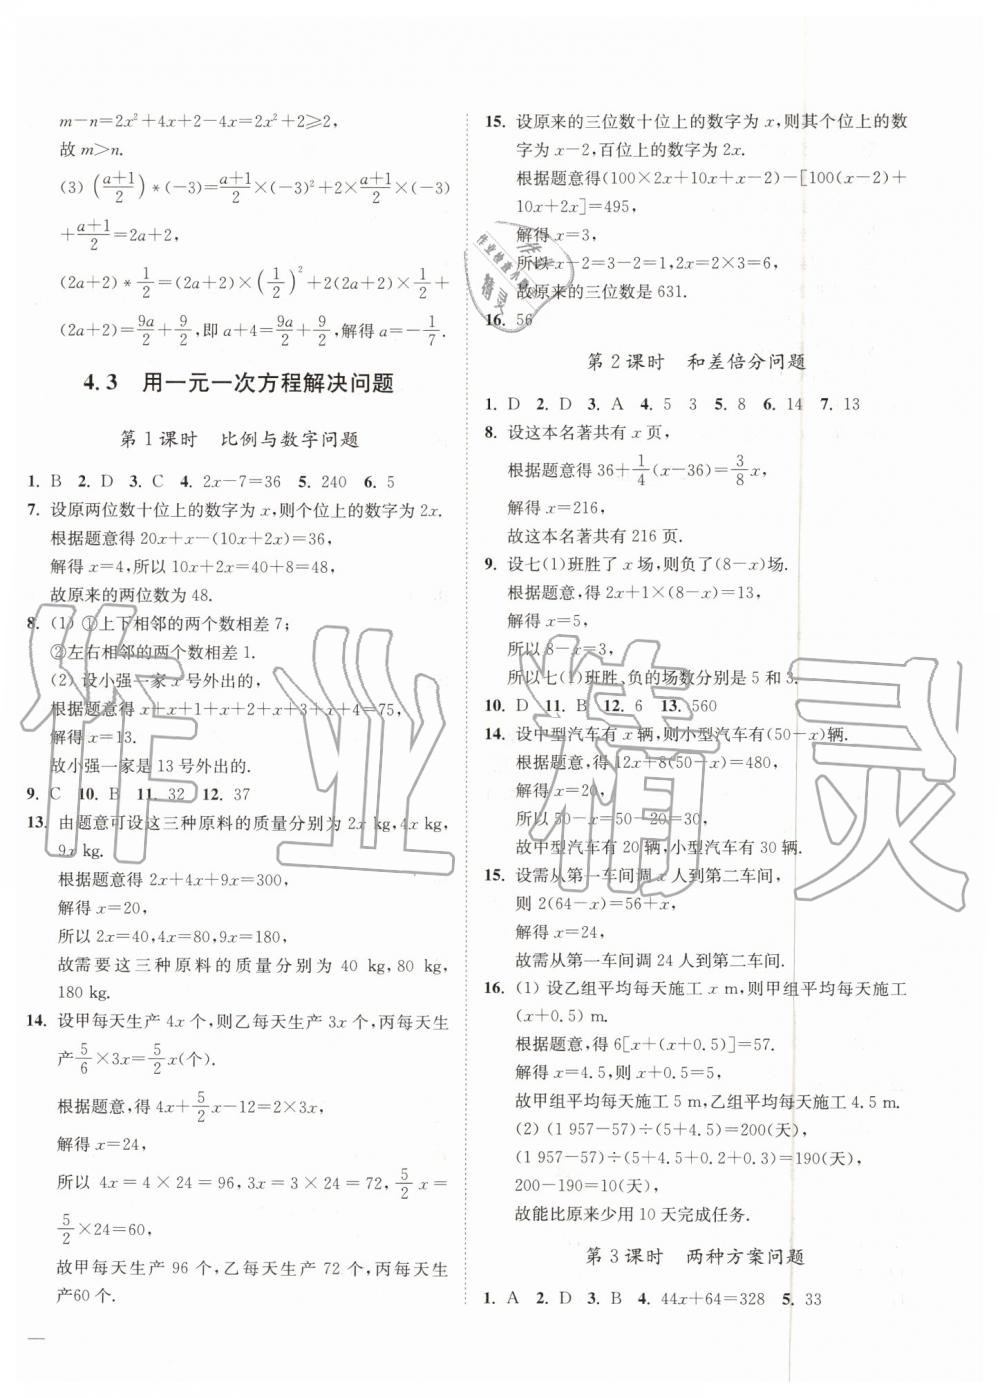 m-n=2x²+4x+2-4x=2x²+2≥2,
故 m>n.
(3) ((a+1)/2)*(-3)=(a+1)/2×(-3)²+2×(a+1)/2×(-3)
+(a+1)/2=2a+2,
(2a+2)*1/2=(2a+2)×(1/2)²+2(2a+2)×1/2+
(2a+2)=9a/2+9/2,即 a+4=9a/2+9/2,解得 a=-1/7.
4.3 用一元一次方程解决问题
第1课时 比例与数字问题
1. B 2. D 3. C 4. 2x-7=36 5. 240 6. 5
7. 设原两位数十位上的数字为 x,则个位上的数字为 2x.
根据题意得 20x+x-(10x+2x)=36,
解得 x=4,所以 10x+2x=40+8=48,
故原来的两位数为 48.
8. (1) ①上下相邻的两个数相差 7;
②左右相邻的两个数相差 1.
(2) 设小强一家 x 号外出的.
根据题意得 x+x+1+x+2+x+3+x+4=75,
解得 x=13.
故小强一家是 13 号外出的.
9. C 10. B 11. 32 12. 37
13. 由题意可设这三种原料的质量分别为 2x kg,4x kg,
9x kg.
根据题意得 2x+4x+9x=300,
解得 x=20,
所以 2x=40,4x=80,9x=180,
故需要这三种原料的质量分别为 40 kg,80 kg,
180 kg.
14. 设甲每天生产 4x 个,则乙每天生产 3x 个,丙每天生
产5/6×3x=5/2x(个).
根据题意,得 4x+5/2x-12=2×3x,
解得 x=24,
所以 4x=4×24=96,3x=3×24=72,5/2x=
5/2×24=60,
故甲每天生产 96 个,乙每天生产 72 个,丙每天生
产60 个.
15. 设原来的三位数十位上的数字为 x,则其个位上的数
字为 x-2,百位上的数字为 2x.
根据题意得(100×2x+10x+x-2)-[100(x-2)+
10x+2x]=495,
解得 x=3,
所以 x-2=3-2=1,2x=2×3=6,
故原来的三位数是 631.
16. 56
第2课时 和差倍分问题
1. D 2. D 3. A 4. 5 3 5. 8 6. 14 7. 13
8. 设这本名著共有 x 页,
根据题意得 36+1/4(x-36)=3/8x,
解得 x=216,
故这本名著共有 216 页.
9. 设七(1)班胜了 x 场,则负了(8-x)场.
根据题意,得 2x+1×(8-x)=13,
解得 x=5,
所以 8-x=3,
所以七(1)班胜、负的场数分别是 5 和 3.
10. D 11. B 12. 6 13. 560
14. 设中型汽车有 x 辆,则小型汽车有(50-x)辆.
根据题意,得 12x+8(50-x)=480,
解得 x=20,
所以 50-x=50-20=30,
故中型汽车有 20 辆,小型汽车有 30 辆.
15. 设需从第一车间调 x 人到第二车间,
则 2(64-x)=56+x,
解得 x=24,
故需从第一车间调 24 人到第二车间.
16. (1) 设乙组平均每天施工 x m,则甲组平均每天施工
(x+0.5) m.
根据题意,得 6[x+(x+0.5)]=57.
解得 x=4.5,则 x+0.5=5,
故甲组平均每天施工 5 m,乙组平均每天施工 4.5 m.
(2) (1 957-57)÷(5+4.5)=200(天),
(1 957-57)÷(5+4.5+0.2+0.3)=190(天),
200-190=10(天),
故能比原来少用 10 天完成任务.
第3课时 两种方案问题
1. A 2. D 3. B 4. 44x+64=328 5. 33
作业精灵